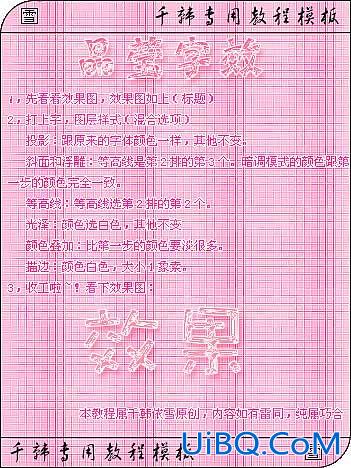 雪 千韩专用教程模板
晶莹字效
1,先看看效果图,效果图如上(标题)
2,打上字,图层样式(混合选项)
投影:跟原来的字体颜色一样,其他不变。
斜面和浮雕:等高线是第2排的第3个。暗调模式的颜色跟第
一步的颜色完全一致。
等高线:等高线选第2排的第2个。
光泽:颜色选白色,其他不变
颜色叠加:比第一步的颜色要淡很多。
描边:颜色白色,大小1象素。
3,收工啦~!看下效果图:
效果
本教程属千韩依雪原创,内容如有雷同,纯属巧合
千韩专用教程模板 雪
UiBQ.CoM